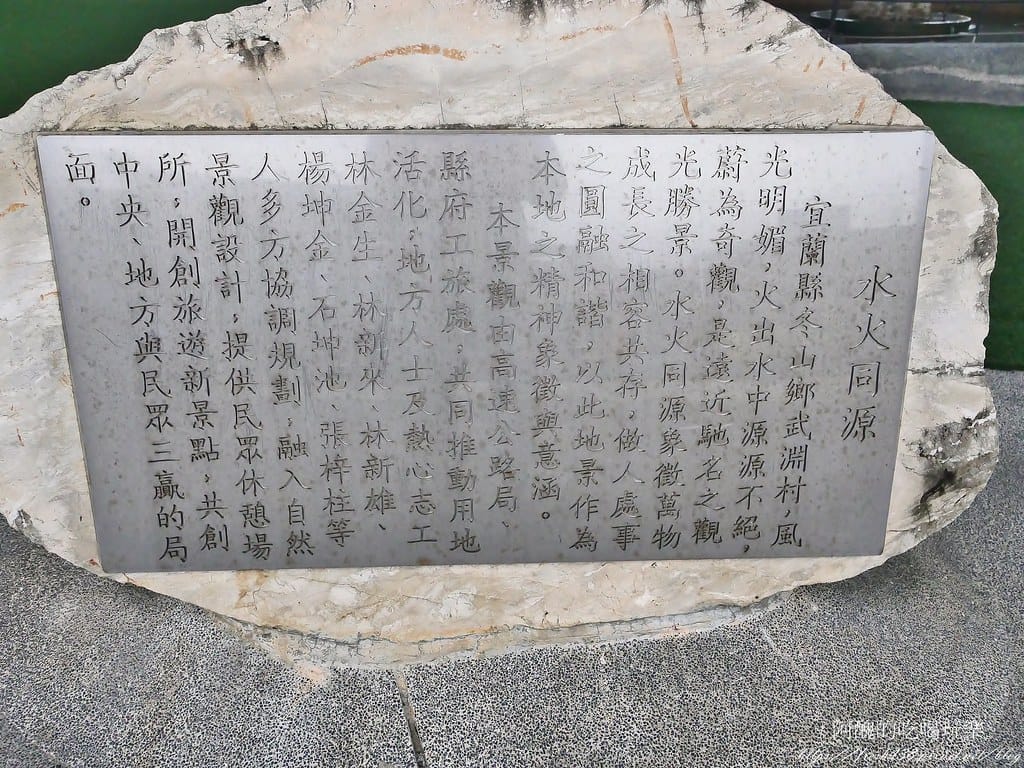 水火同源
宜蘭縣冬山鄉武淵村，風
光明媚，火出水中源源不絕，
蔚為奇觀，是遠近馳名之觀
光勝景。水火同源象徵萬物
成長之相容共存，做人處事
之圓融和諧，以此地景作為
本地之精神象徵與意涵。
本景觀由高速公路局、
縣府工旅處，共同推動用地
活化，地方人士及熱心志工
林金生、林新來、林新雄、
楊坤金、石坤池、張梓柱等
人多方協調規劃，融入自然
景觀設計，提供民眾休憩場
所，開創旅遊新景點，共創
中央、地方與民眾三贏的局
面。